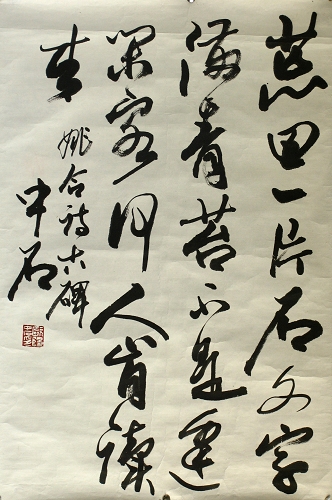 荒田一片石文字
滿青苔不是逢
閑客何人肯讀
来
姚合詩古碑
中石